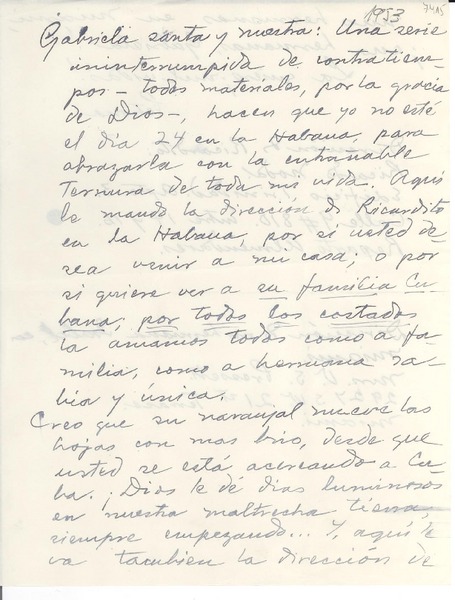 1953
7415
Gabriela santa y nuestra: Una serie
ininterrumpida de contratiem-
pos – todos materiales, por la gracia
de Dios –, hacen que yo no esté
el día 24 en la Habana, para
abrazarla con la entrañable
Ternura de toda mi vida. Aquí
le mando la dirección de Ricardito
en La Habana, por si usted de-
sea venir a mi casa; o por
si quiere ver a su familia Cu-
bana; por todos los costados
la amamos todos como a fa-
milia, como a hermana sa-
bia y única.
Creo que su naranjal mueve las
hojas con mas brio, desde que
usted se está acercando a Cu-
ba. ¡Dios le dé dias luminosos
en nuestra maltrecha tierra,
siempre empezando... Y, aquí le
va tambien la dirección de